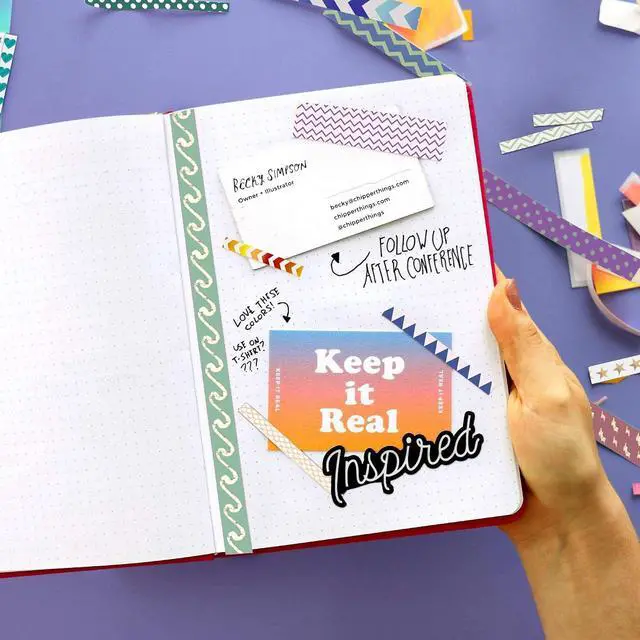 BECKY SIMPSON
Owner + Illustrator
becky@chipperthings.com
chipperthings.com
@chipperthings
FOLLOW UP
AFTER CONFERENCE
LOVE THESE
COLORS!
USE ON
T-SHIRT?
???
KEEP IT REAL
Keep
it
Real
KEEP IT REAL
Inspired